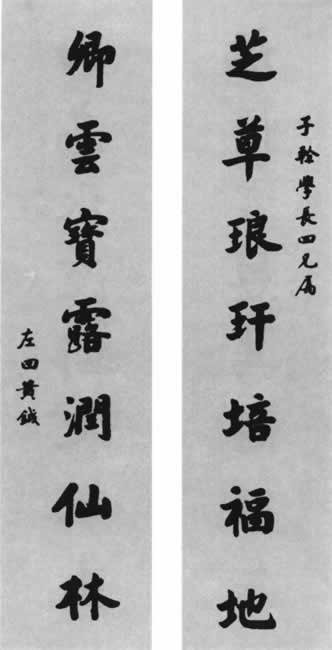 芝草琅玕培福地
子幹學長四兄屬
卿雲寶露潤仙林
左田黄鉞